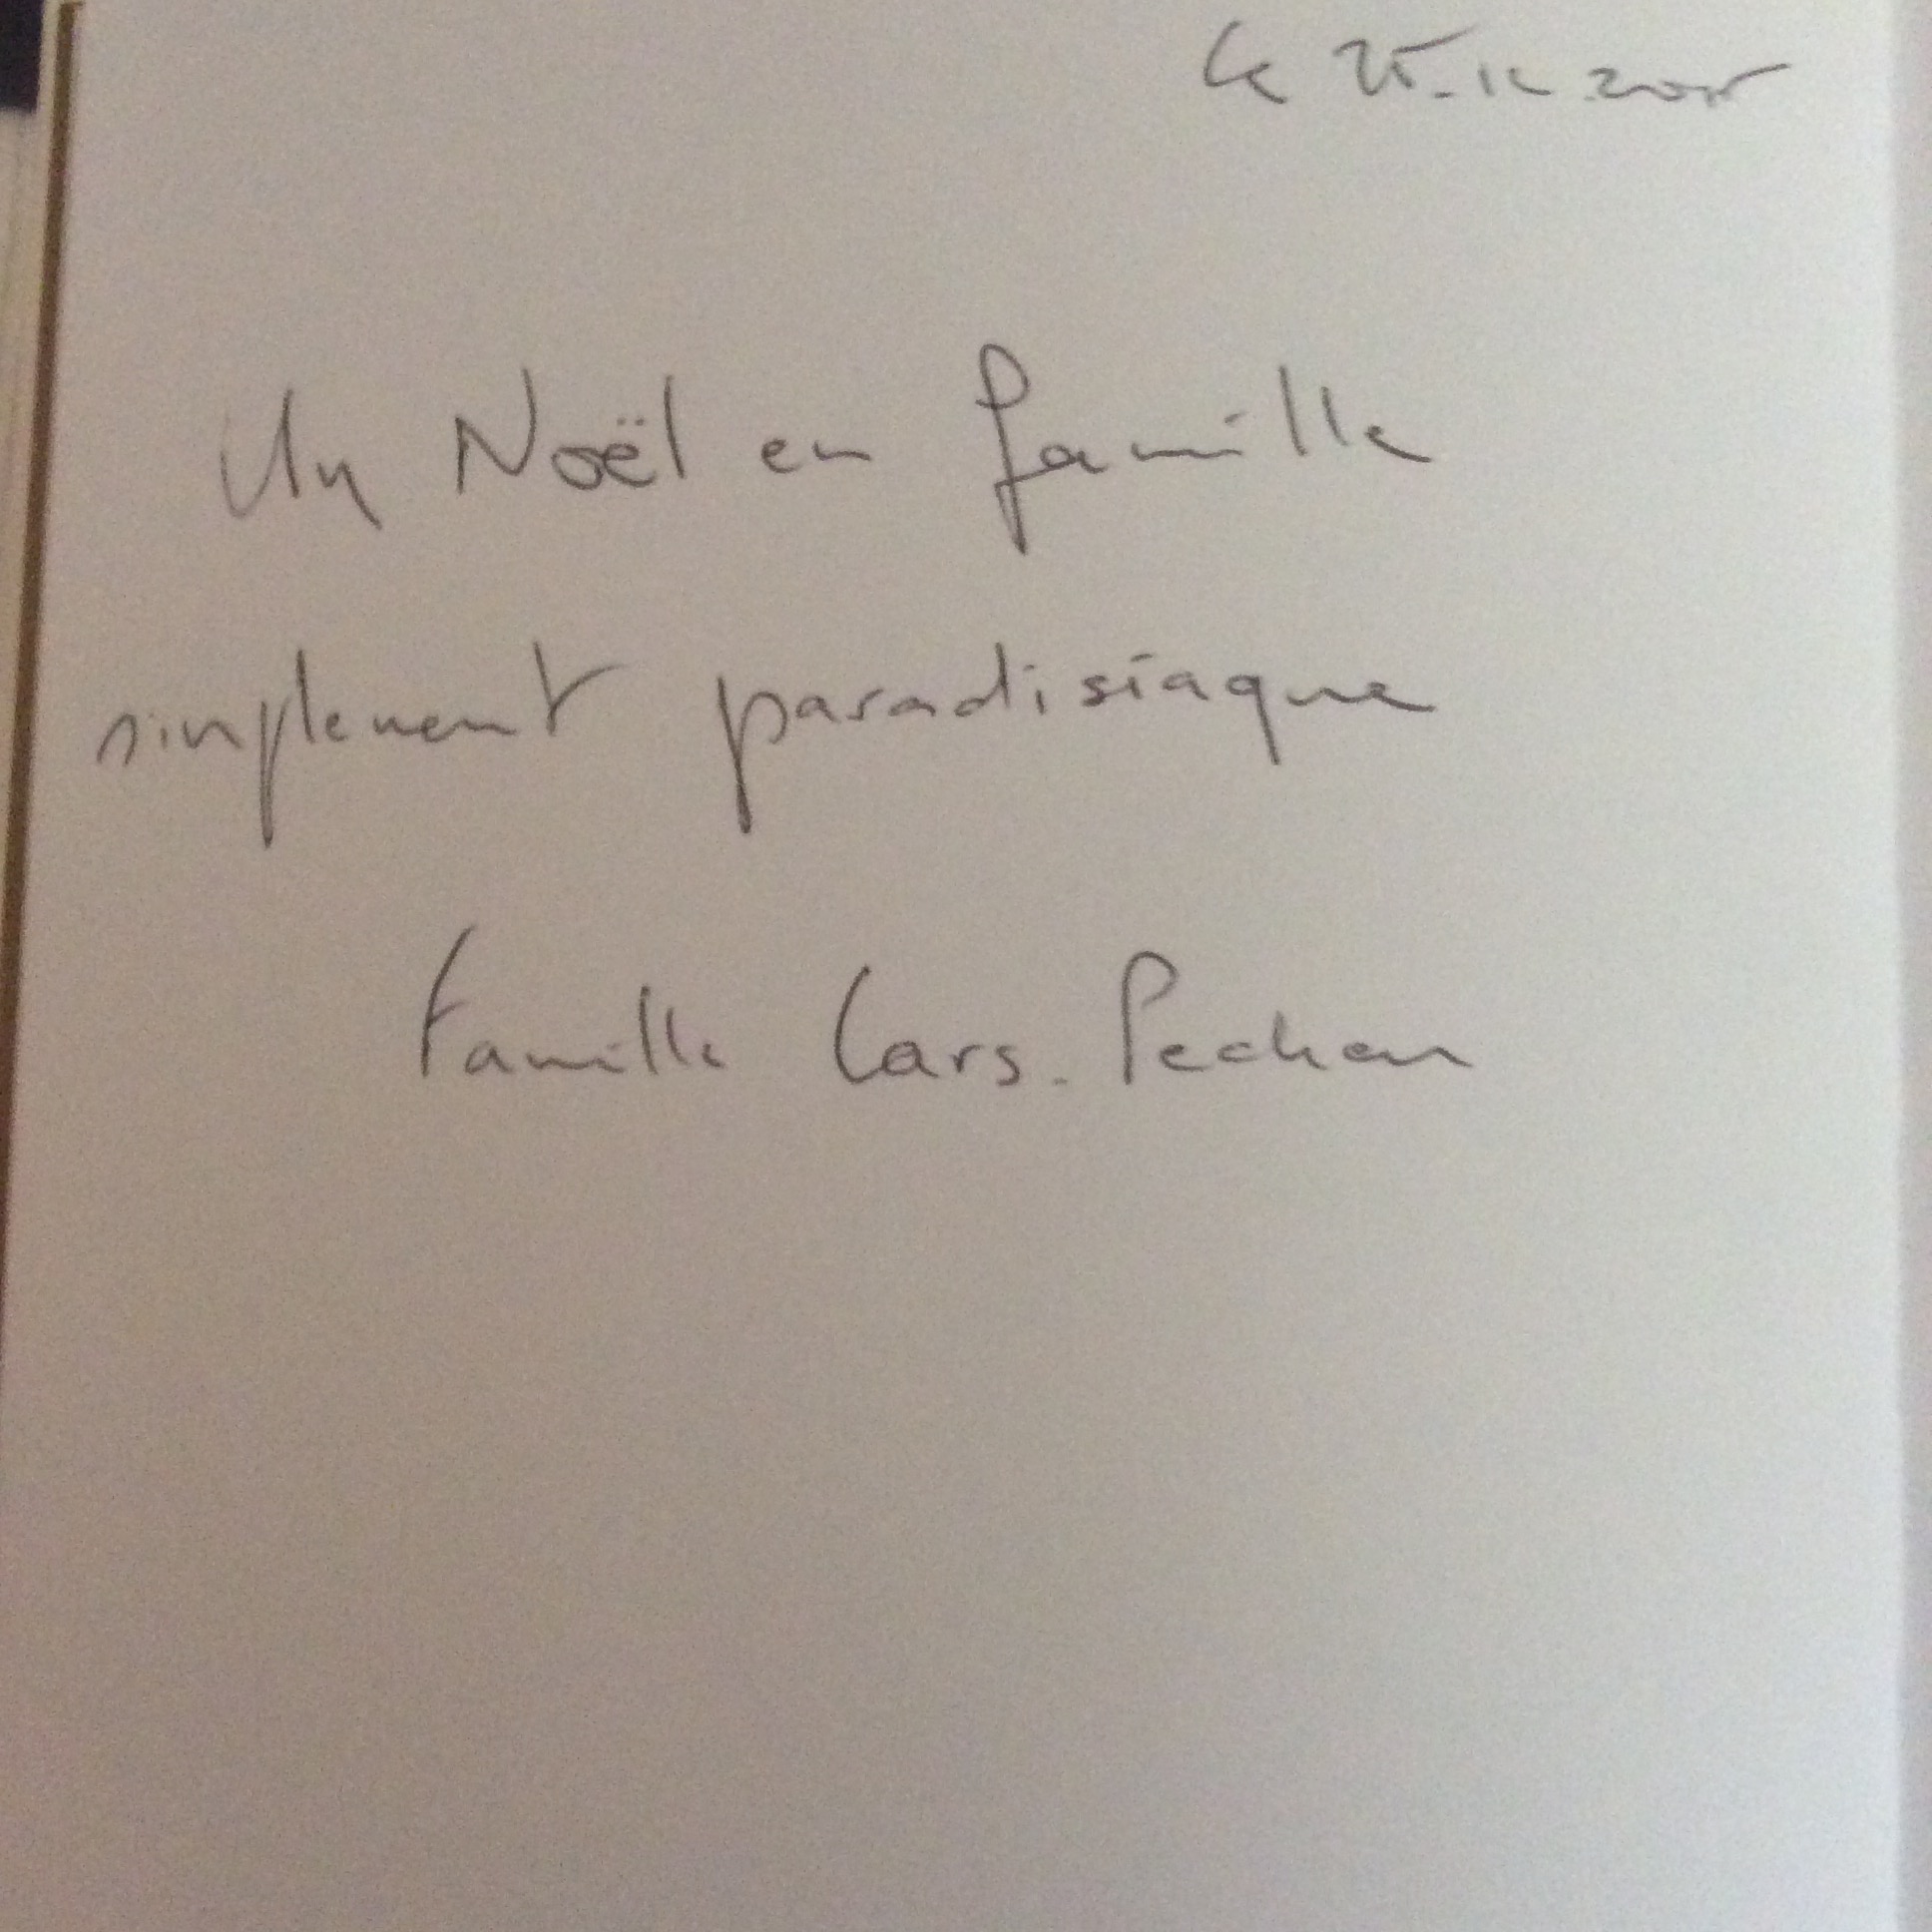 Le 25-12.2015
Un Noël en famille
simplement paradisiaque
Famille Cars. Pechon